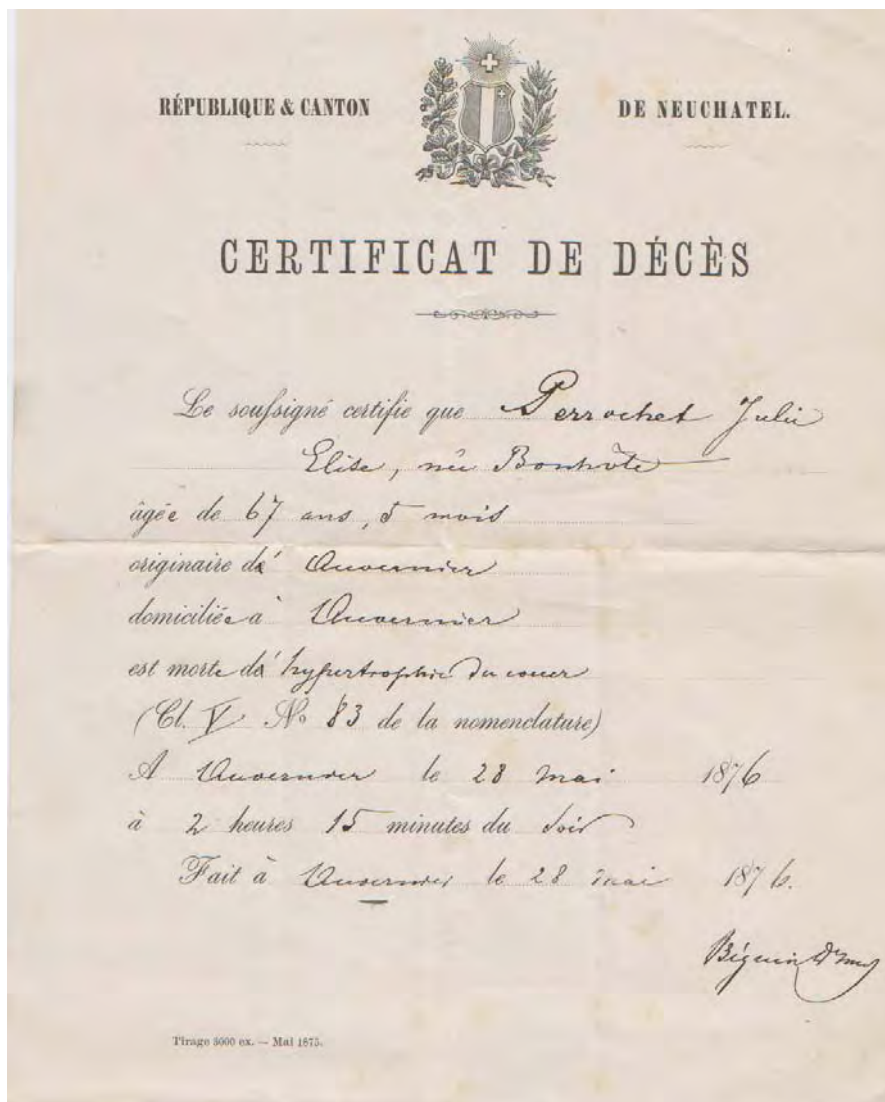 RÉPUBLIQUE & CANTON DE NEUCHATEL.
CERTIFICAT DE DÉCÈS
Le soussigné certifie que Perrochet Julie
Elise, née Bonhôte
âgée de 67 ans, 5 mois
originaire d' Auvernier
domiciliée à Auvernier
est morte d' hypertrophie du coeur
(Cl. V No 83 de la nomenclature)
A Auvernier le 28 mai 1876
à 2 heures 15 minutes du soir
Fait à Auvernier le 28 mai 1876.
Béguin
Tirage 3000 ex. — Mai 1875.